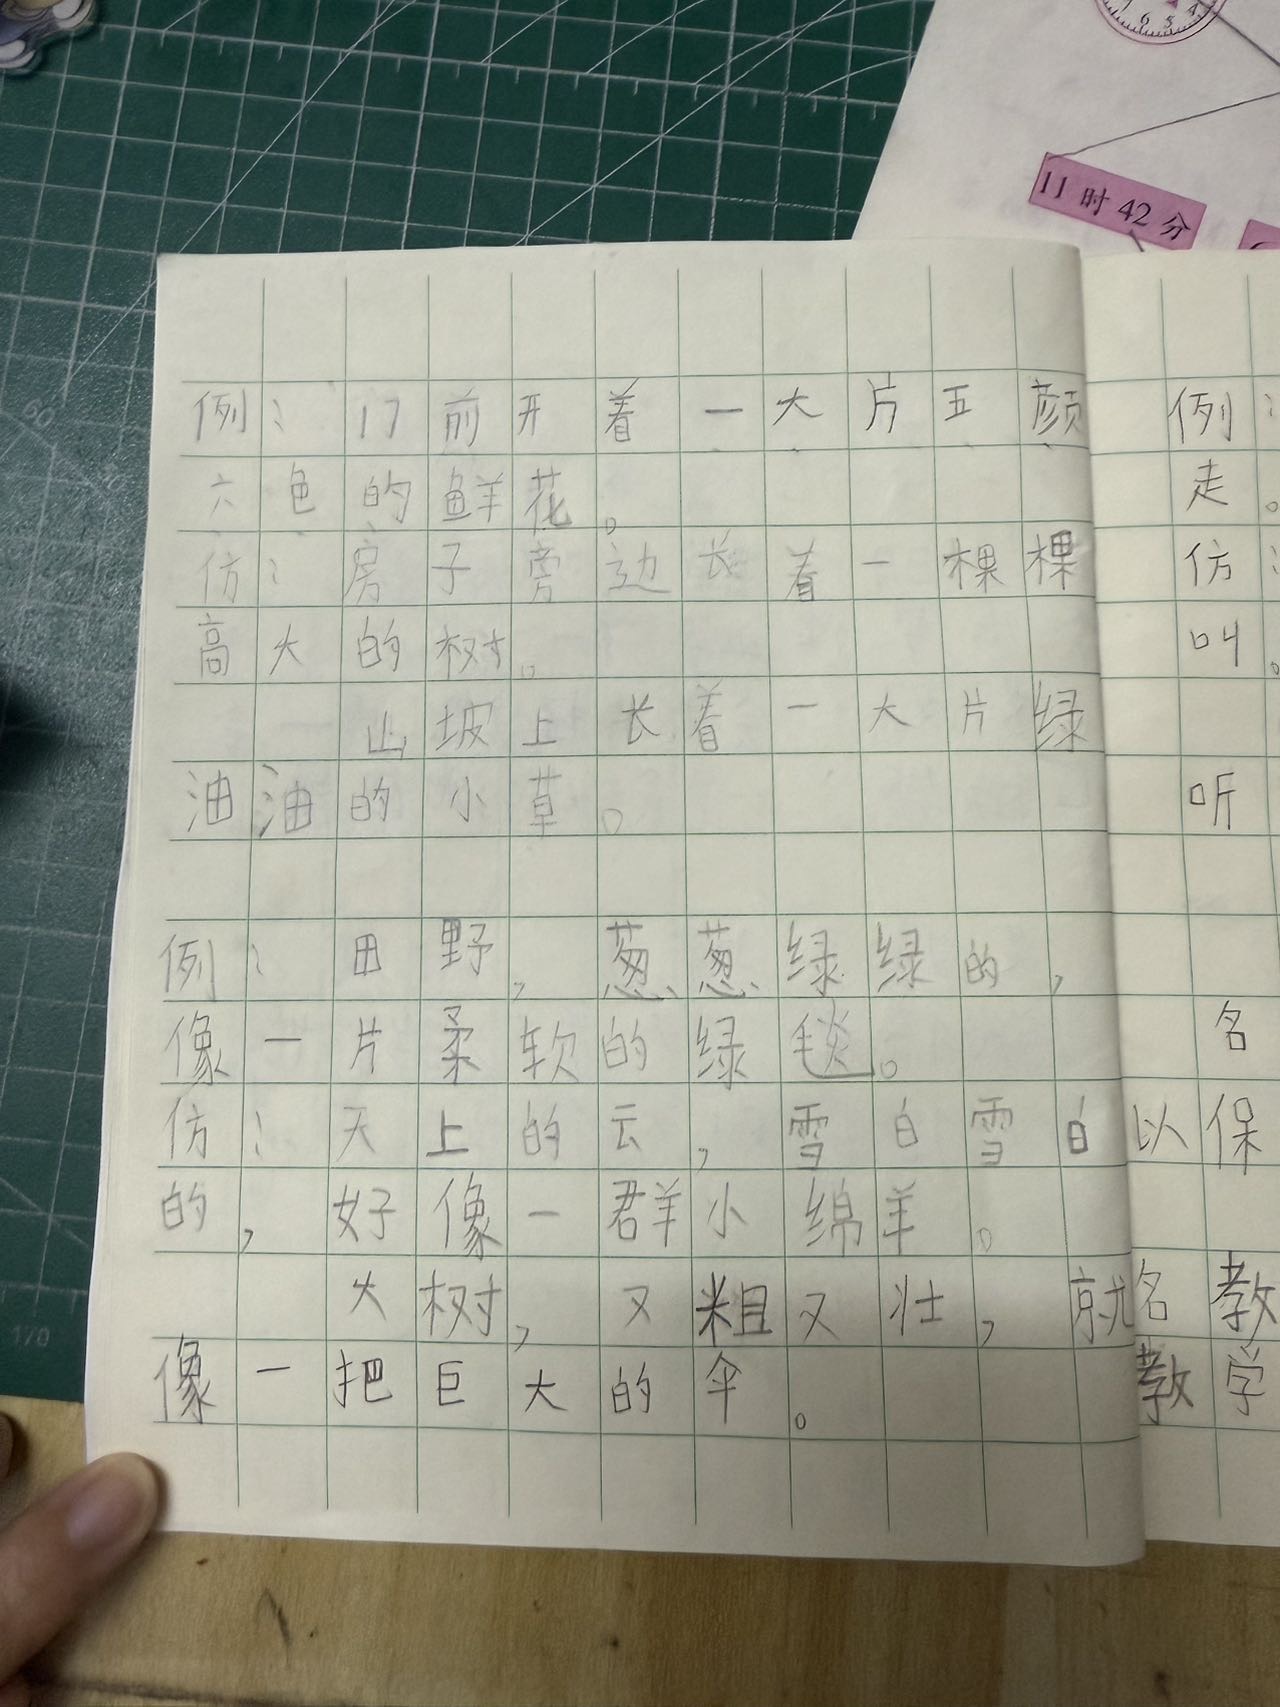 6 5 4
11时42分
例：门前开着一大片五颜
六色的鲜花。
仿：房子旁边长着一棵棵
高大的树。
山坡上长着一大片绿
油油的小草。
例：田野，葱葱绿绿的，
像一片柔软的绿毯。
仿：天上的云，雪白雪白
的，好像一群小绵羊。
大树，又粗又壮，就
像一把巨大的伞。
例：
走。
仿：
叫。
听
名
以保
名教
教学
170